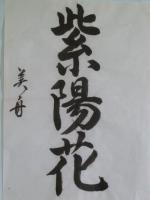 紫陽花
美舟